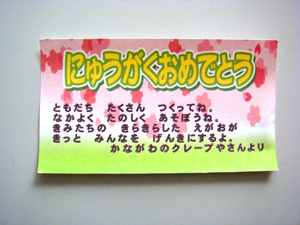 にゅうがくおめでとう
ともだち　たくさん　つくってね。
なかよく　たのしく　あそぼうね。
きみたちの　きらきらした　えがおが
きっと　みんなを　げんきにするよ。
かながわのクレープやさんより